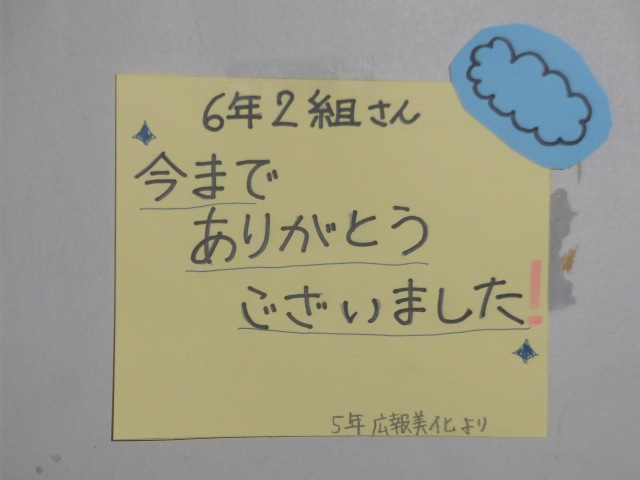 6年2組さん
今まで
ありがとう
ございました!
5年広報美化より